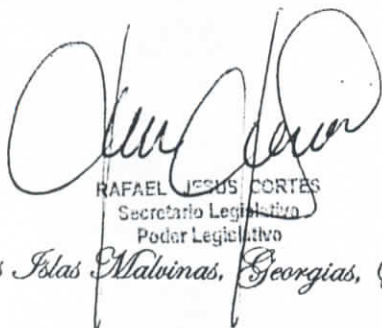 RAFAEL JESUS CORTES
Secretario Legislativo
Poder Legislativo
s Islas Malvinas, Georgias,